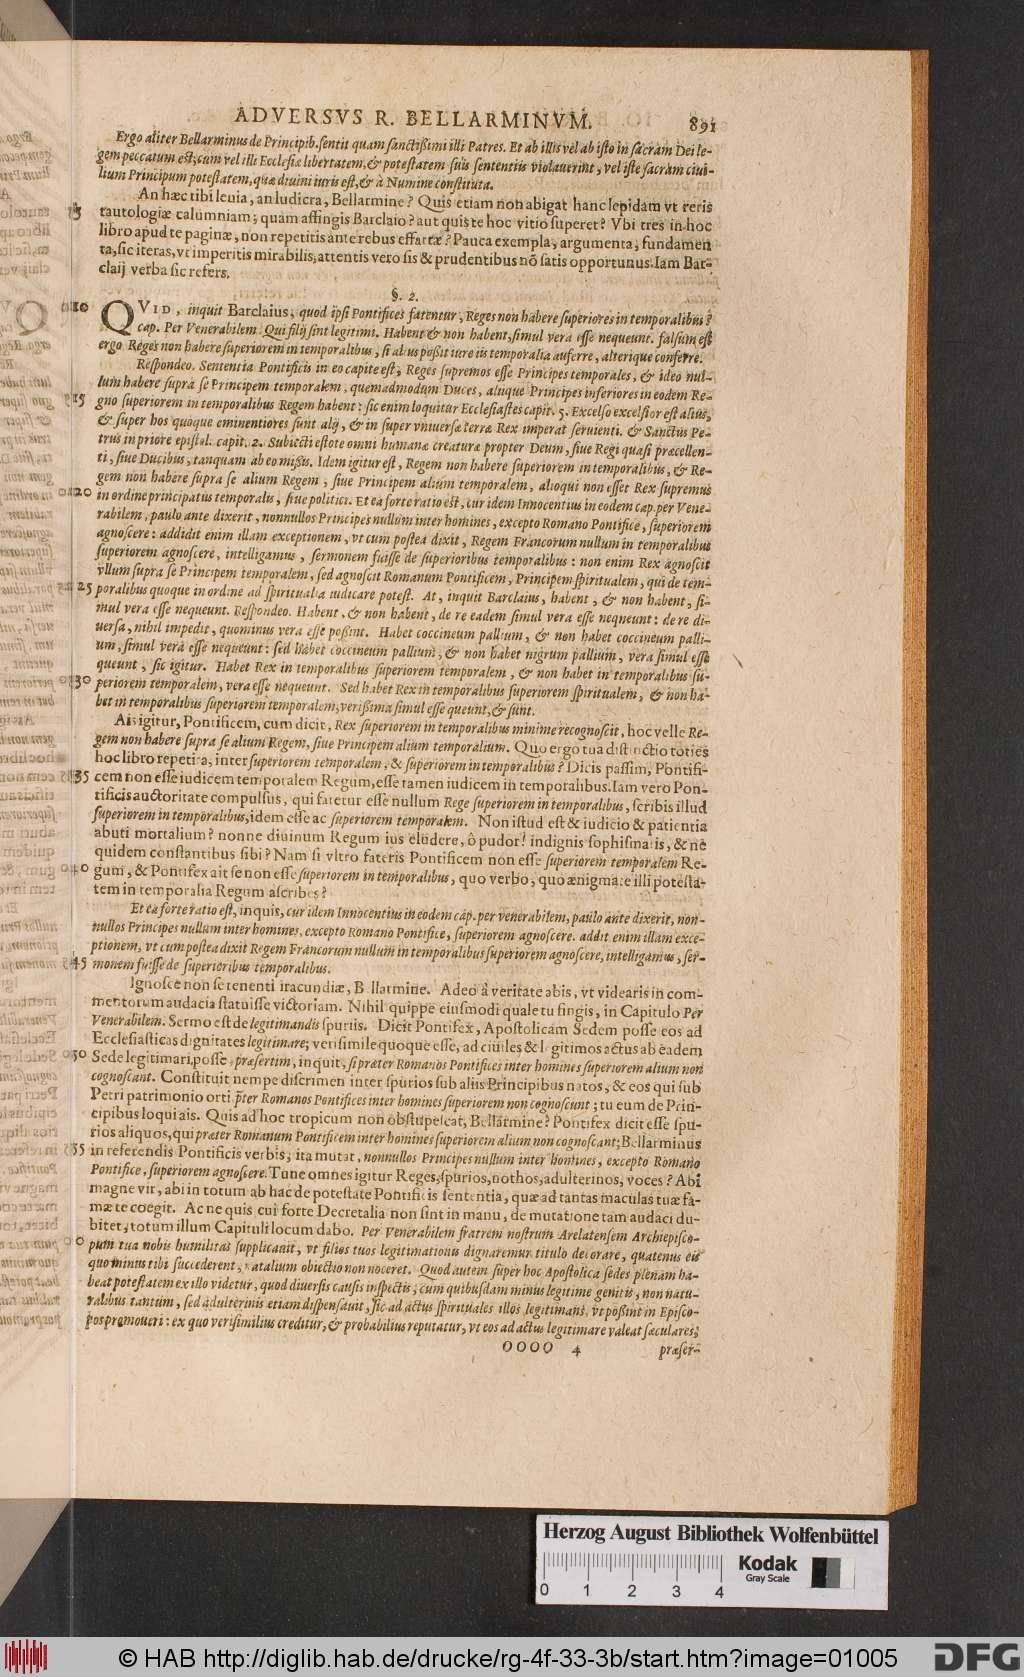 ADVERSVS R. BELLARMINVM. 891
Ergo aliter Bellarminus de Principib. sentit quam sanctißimi illi Patres. Et ab illis vel ab isto in sacram Dei le-
gem peccatum est; cum vel illi Ecclesiæ libertatem, & potestatem suis sententiis violauerint, vel iste sacram ciui-
lium Principum potestatem, quæ diuini iuris est, & à Numine constituta.
An hæc tibi leuia, an ludicra, Bellarmine? Quis etiam non abigat hanc lepidam vt reris
tautologiæ calumniam; quam affingis Barclaio? aut quis te hoc vitio superet? Vbi tres in hoc
libro apud te paginæ, non repetitis ante rebus effartæ? Pauca exempla, argumenta, fundamen
ta, sic iteras, vt imperitis mirabilis, attentis vero sis & prudentibus nō satis opportunus. Iam Bar-
claij verba sic refers.
§. 2.
QVID, inquit Barclaius, quod ipsi Pontifices fatentur, Reges non habere superiores in temporalibus?
cap. Per Venerabilem. Qui filij sint legitimi. Habent & non habent, simul vera esse nequeunt. falsum est
ergo Reges non habere superiorem in temporalibus, si alius poßit iure iis temporalia auferre, alterique conferre.
Respondeo. Sententia Pontificis in eo capite est, Reges supremos esse Principes temporales, & ideo nul-
lum habere supra se Principem temporalem, quemadmodum Duces, aliique Principes inferiores in eodem Re-
15 gno superiorem in temporalibus Regem habent: sic enim loquitur Ecclesiastes capit. 5. Excelso excelsior est alius,
& super hos quoque eminentiores sunt alij, & in super vniuersæ terræ Rex imperat seruienti. & Sanctus Pe-
trus in priore epistol. capit. 2. Subiecti estote omni humanæ creaturæ propter Deum, siue Regi quasi præcellen-
ti, siue Ducibus, tanquam ab eo mißis. Idem igitur est, Regem non habere superiorem in temporalibus, & Re-
gem non habere supra se alium Regem, siue Principem alium temporalem, alioqui non esset Rex supremus
20 in ordine principatus temporalis, siue politici. Et ea forte ratio est, cur idem Innocentius in eodem cap. per Vene-
rabilem, paulo ante dixerit, nonnullos Principes nullum inter homines, excepto Romano Pontifice, superiorem
agnoscere: addidit enim illam exceptionem, vt cum postea dixit, Regem Francorum nullum in temporalibus
superiorem agnoscere, intelligamus, sermonem fuisse de superioribus temporalibus: non enim Rex agnoscit
vllum supra se Principem temporalem, sed agnoscit Romanum Pontificem, Principem spiritualem, qui de tem-
25 poralibus quoque in ordine ad spiritualia iudicare potest. At, inquit Barclaius, habent, & non habent, si-
mul vera esse nequeunt. Respondeo. Habent, & non habent, de re eadem simul vera esse nequeunt: de re di-
uersa, nihil impedit, quominus vera esse poßint. Habet coccineum pallium, & non habet coccineum palli-
um, simul vera esse nequeunt: sed habet coccineum pallium, & non habet nigrum pallium, vera simul esse
queunt, sic igitur. Habet Rex in temporalibus superiorem temporalem, & non habet in temporalibus su-
30 periorem temporalem, vera esse nequeunt. Sed habet Rex in temporalibus superiorem spiritualem, & non ha-
bet in temporalibus superiorem temporalem, verißima simul esse queunt, & sunt.
Ais igitur, Pontificem, cum dicit, Rex superiorem in temporalibus minime recognoscit, hoc velle Re-
gem non habere supra se alium Regem, siue Principem alium temporalium. Quo ergo tua distinctio toties
hoc libro repetita, inter superiorem temporalem, & superiorem in temporalibus? Dicis passim, Pontifi-
35 cem non esse iudicem temporalem Regum, esse tamen iudicem in temporalibus. Iam vero Pon-
tificis auctoritate compulsus, qui fatetur esse nullum Rege superiorem in temporalibus, scribis illud
superiorem in temporalibus, idem esse ac superiorem temporalem. Non istud est & iudicio & patientia
abuti mortalium? nonne diuinum Regum ius eludere, ô pudor! indignis sophismatis, & ne
quidem constantibus sibi? Nam si vltro fateris Pontificem non esse superiorem temporalem Re-
40 gum, & Pontifex ait se non esse superiorem in temporalibus, quo verbo, quo ænigmate illi potesta-
tem in temporalia Regum ascribes?
Et ea forte ratio est, inquis, cur idem Innocentius in eodem cap. per venerabilem, paulo ante dixerit, non-
nullos Principes nullum inter homines, excepto Romano Pontifice, superiorem agnoscere. addit enim illam exce-
ptionem, vt cum postea dixit Regem Francorum nullum in temporalibus superiorem agnoscere, intelligamus, ser-
45 monem fuisse de superioribus temporalibus.
Ignosce non se tenenti iracundiæ, Bellarmine. Adeo à veritate abis, vt videaris in com-
mentorum audacia statuisse victoriam. Nihil quippe eiusmodi quale tu fingis, in Capitulo Per
Venerabilem. Sermo est de legitimandis spuriis. Dicit Pontifex, Apostolicam Sedem posse eos ad
Ecclesiasticas dignitates legitimare; verisimile quoque esse, ad ciuiles & legitimos actus ab eadem
50 Sede legitimari posse, præsertim, inquit, si præter Romanos Pontifices inter homines superiorem alium non
cognoscant. Constituit nempe discrimen inter spurios sub aliis Principibus natos, & eos qui sub
Petri patrimonio orti pter Romanos Pontifices inter homines superiorem non cognoscunt; tu eum de Prin-
cipibus loqui ais. Quis ad hoc tropicum non obstupescat, Bellarmine? Pontifex dicit esse spu-
rios aliquos, qui præter Romanum Pontificem inter homines superiorem alium non cognoscant; Bellarminus
55 in referendis Pontificis verbis, ita mutat, nonnullos Principes nullum inter homines, excepto Romano
Pontifice, superiorem agnoscere. Tune omnes igitur Reges, spurios, nothos, adulterinos, voces? Abi
magne vir, abi in totum ab hac de potestate Pontificis sententia, quæ ad tantas maculas tuæ fa-
mæ te coegit. Ac ne quis cui forte Decretalia non sint in manu, de mutatione tam audaci du-
bitet, totum illum Capituli locum dabo. Per Venerabilem fratrem nostrum Arelatensem Archiepisco-
pum tua nobis humilitas supplicauit, vt filios tuos legitimationis dignaremur titulo decorare, quatenus eis
quo minus tibi succederent, natalium obiectio non noceret. Quod autem super hoc Apostolica sedes plenam ha-
beat potestatem ex illo videtur, quod diuersis causis inspectis, cum quibusdam minus legitime genitis, non natu-
ralibus tantum, sed adulterinis etiam dispensauit, sic ad actus spirituales illos legitimans, vt poßint in Episco-
pos promoueri: ex quo verisimilius creditur, & probabilius reputatur, vt eos ad actus legitimare valeat sæculares;
oooo 4 præser-
Herzog August Bibliothek Wolfenbüttel
Kodak
Gray Scale
0 1 2 3 4
© HAB http://diglib.hab.de/drucke/rg-4f-33-3b/start.htm?image=01005
DFG